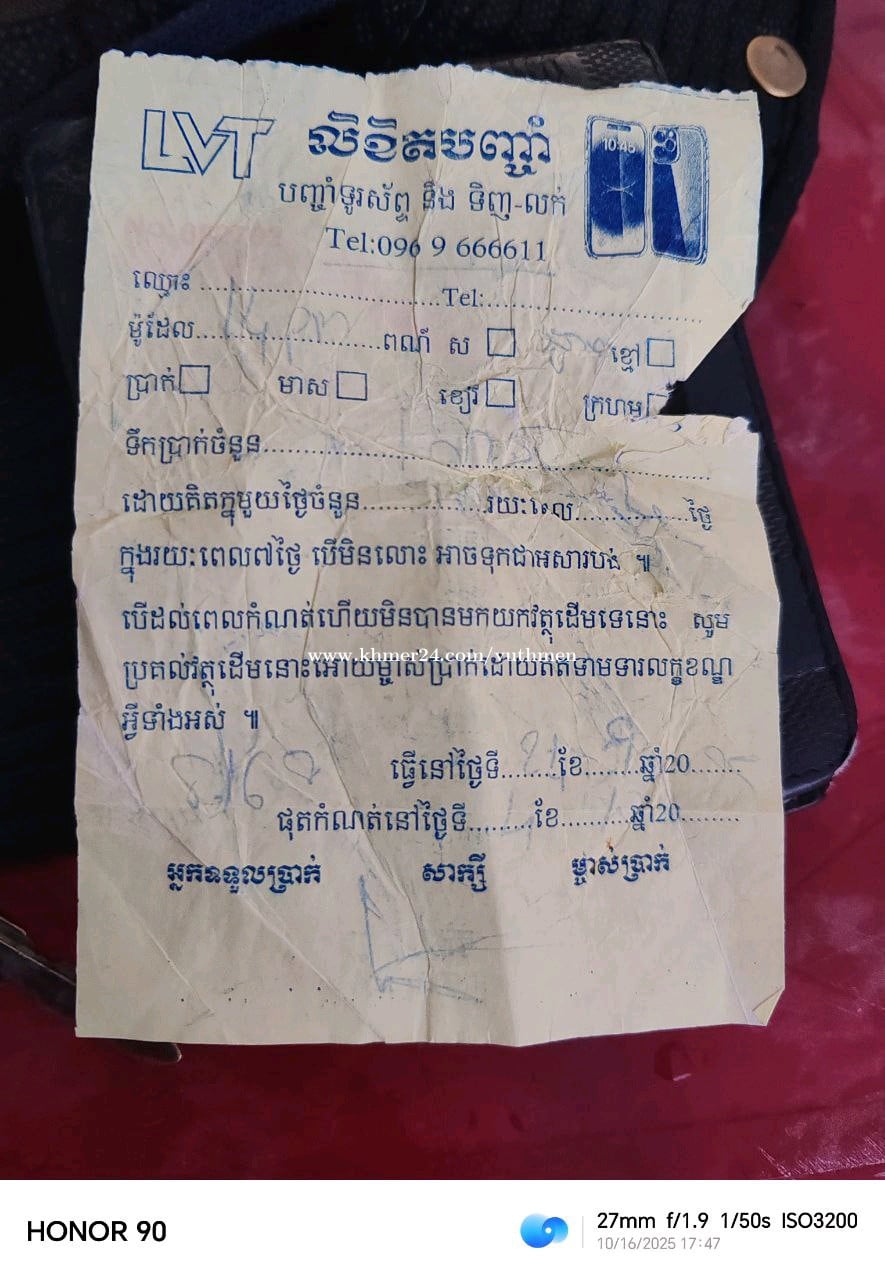 LVT លិខិតបញ្ចាំ
10:48
បញ្ចាំទូរស័ព្ទ នឹង ទិញ-លក់
Tel:096 9 666611
ឈ្មោះ ........................................Tel:....................................
ម៉ូដែល..............................ពណ៌ ស ខ្មៅ
ប្រាក់ មាស ខៀវ ក្រហម
ទឹកប្រាក់ចំនួន............................................................
ដោយគិតក្នុមួយថ្ងៃចំនួន....................រយៈពេល..................ថ្ងៃ
ក្នុងរយៈពេល៧ថ្ងៃ បើមិនលោះ អាចទុកជាអសារបង់ ៕
បើដល់ពេលកំណត់ហើយមិនបានមកយកវត្ថុដើមទេនោះ សូម
www.khmer24.com/vuthmen
ប្រគល់វត្ថុដើមនោះអោយម្ចាស់ប្រាក់ដោយឥតទាមទារលក្ខខណ្ឌ
អ្វីទាំងអស់ ៕
ធ្វើនៅថ្ងៃទី.........ខែ.........ឆ្នាំ20........
ផុតកំណត់នៅថ្ងៃទី.........ខែ..........ឆ្នាំ20.........
អ្នកទទួលប្រាក់ សាក្សី ម្ចាស់ប្រាក់
HONOR 90
27mm f/1.9 1/50s ISO3200
10/16/2025 17:47